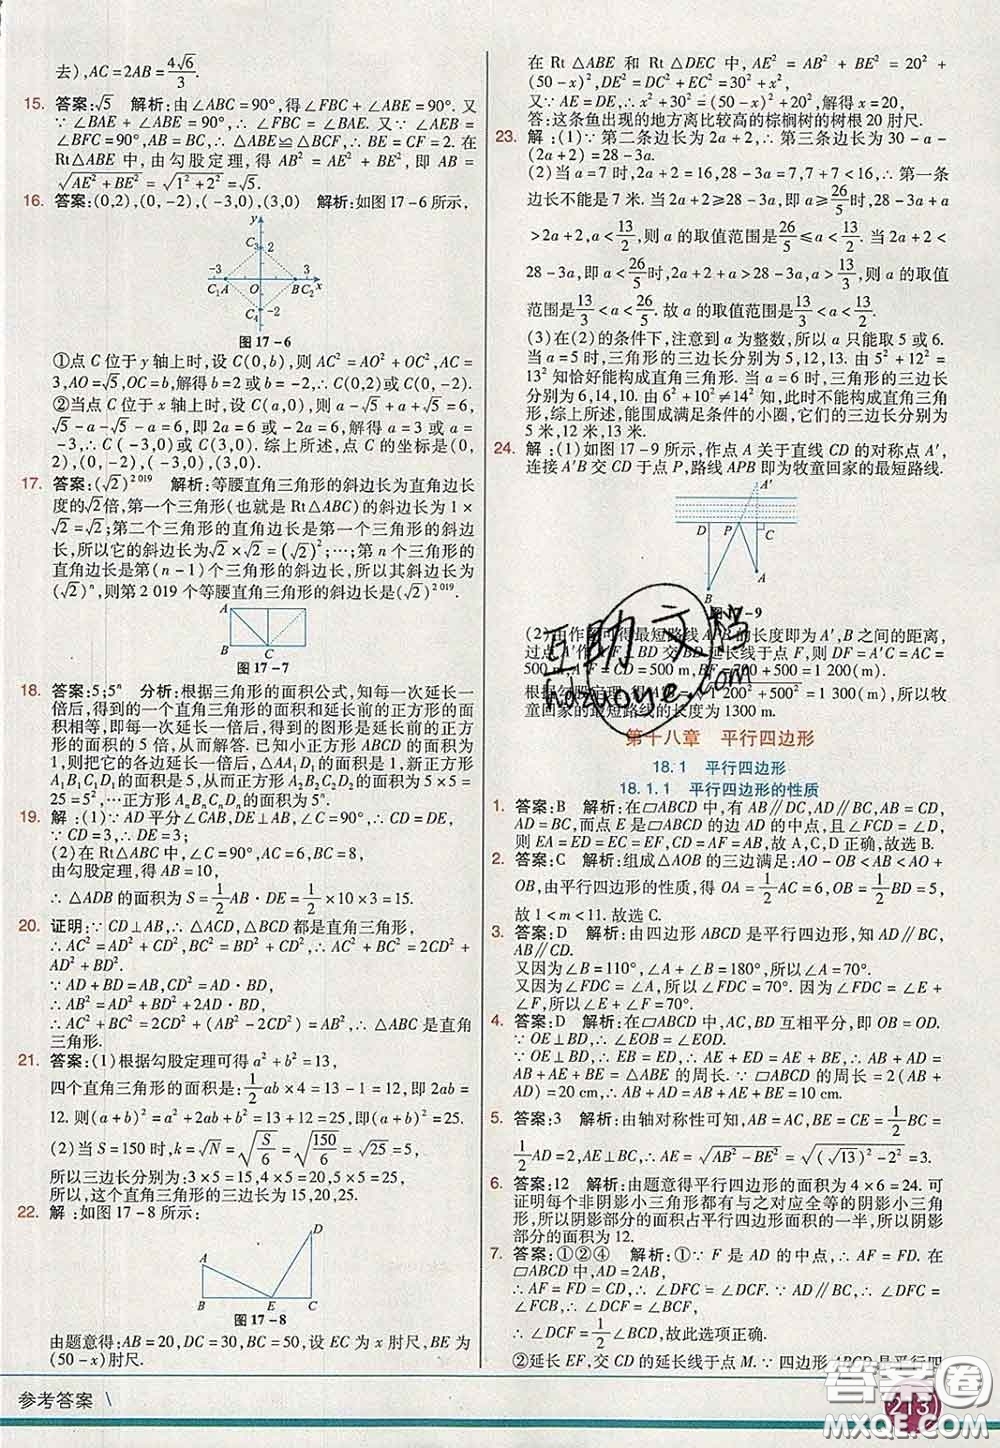 去),AC=2AB=4√6/3.
15. 答案:√5 解析:由∠ABC=90°,得∠FBC+∠ABE=90°.又
∵∠BAE+∠ABE=90°,∴∠FBC=∠BAE.又∵∠AEB=
∠BFC=90°,AB=BC,∴△ABE≌△BCF,∴BE=CF=2.在
Rt△ABE 中,由勾股定理,得 AB²=AE²+BE²,即 AB=
√(AE²+BE²)=√(1²+2²)=√5.
16. 答案:(0,2),(0,-2),(-3,0),(3,0) 解析:如图17-6所示,
y
C₃ 2
-3 3
C₁A O BC₂ x
C₄ -2
图17-6
①点 C 位于 y 轴上时,设 C(0,b),则 AC²=AO²+OC²,AC=
3,AO=√5,OC=b,解得b=2或b=-2,∴C(0,2)或C(0,-2).
②当点 C 位于 x 轴上时,设 C(a,0),则a-√5+a+√5=6,
√5-a-√5-a=6,即 2a=6或-2a=6,解得 a=3 或 a=
-3,∴C(-3,0)或 C(3,0).综上所述,点 C 的坐标是(0,
2),(0,-2),(-3,0),(3,0).
17. 答案:(√2)²⁰¹⁹ 解析:等腰直角三角形的斜边长为直角边长
度的√2倍,第一个三角形(也就是 Rt△ABC)的斜边长为 1×
√2=√2;第二个三角形的直角边长是第一个三角形的斜边
长,所以它的斜边长为√2×√2=(√2)²;…;第 n 个三角形的
直角边长为第(n-1)个三角形的斜边长,所以其斜边长为
(√2)ⁿ,则第2 019个等腰直角三角形的斜边长为(√2)²⁰¹⁹.
A
B C
图17-7
18. 答案:5;5ⁿ 分析:根据三角形的面积公式,知每一次延长一
倍后,得到的一个直角三角形的面积和延长前的正方形的面
积相等,即每一次延长一倍后,得到的图形是延长前的正方
形的面积的 5 倍,从而解答.已知小正方形 ABCD 的面积为
1,则把它的各边延长一倍后,△AA₁D₁的面积是1,新正方形
A₁B₁C₁D₁的面积是5,从而正方形 A₂B₂C₂D₂的面积为5×5=
25,…正方形 AₙBₙCₙDₙ的面积为5ⁿ.
19. 解:(1)∵AD 平分∠CAB,DE⊥AB,∠C=90°,∴CD=DE,
∵CD=3,∴DE=3.
(2)在 Rt△ABC 中,∠C=90°,AC=6,BC=8,
由勾股定理,得 AB=10,
∴△ADB 的面积为 S=1/2AB·DE=1/2×10×3=15.
20. 证明:∵CD⊥AB,∴△ACD,△BCD 都是直角三角形,
∴AC²=AD²+CD²,BC²=BD²+CD²,∴AC²+BC²=2CD²+
AD²+BD²
∵AD+BD=AB,CD²=AD·BD,
∴AB²=AD²+BD²+2AD·BD,
∴AC²+BC²=2CD²+(AB²-2CD²)=AB²,∴△ABC 是直角
三角形.
21. 答案:(1)根据勾股定理可得 a²+b²=13,
四个直角三角形的面积是:1/2ab×4=13-1=12,即 2ab=
12.则(a+b)²=a²+2ab+b²=13+12=25,即(a+b)²=25.
(2)当 S=150 时,k=√N=√(S/6)=√(150/6)=√25=5,
所以三边长分别为:3×5=15,4×5=20,5×5=25,
所以,这个直角三角形的三边长为15,20,25.
22. 解:如图17-8所示:
D
A
B E C
图17-8
由题意得:AB=20,DC=30,BC=50,设 EC 为 x 肘尺,BE 为
(50-x)肘尺.
在 Rt△ABE 和 Rt△DEC 中,AE²=AB²+BE²=20²+
(50-x)²,DE²=DC²+EC²=30²+x²,
又∵AE=DE,∴x²+30²=(50-x)²+20²,解得 x=20,
答:这条鱼出现的地方离比较高的棕榈树的树根 20 肘尺.
23. 解:(1)∵第二条边长为2a+2,∴第三条边长为30-a-
(2a+2)=28-3a.
(2)当 a=7 时,2a+2=16,28-3a=7,7+7<16,∴第一条
边长不能是7米.当2a+2⩾28-3a,即 a⩾26/5时,28-3a+a
>2a+2,a<13/2,则 a 的取值范围是26/5⩽a<13/2.当 2a+2<
28-3a,即 a<26/5时,2a+2+a>28-3a,a>13/3,则 a 的取值
范围是13/3<a<26/5.故 a 的取值范围是13/3<a<13/2.
(3)在(2)的条件下,注意到 a 为整数,所以 a 只能取5或6.
当 a=5 时,三角形的三边长分别为5,12,13.由 5²+12²=
13²知恰好能构成直角三角形.当 a=6 时,三角形的三边长
分别为6,14,10.由 6²+10²≠14²知,此时不能构成直角三角
形,综上所述,能围成满足条件的小圈,它们的三边长分别为
5米,12米,13米.
24. 解:(1)如图17-9所示,作点 A 关于直线 CD 的对称点 A′,
连接 A′B 交 CD 于点 P,路线 APB 即为牧童回家的最短路线.
A′
D P C
A
B
图17-9
(2)由作图可得最短路线 的长度即为 A′,B 之间的距离,
过点 A′作 A′F⊥ 延长线于点 F,则 DF=A′C=AC=
500 m,A′F=CD=500 m,BF=700+500=1 200(m)
根据勾股定理,得 ²+500²=1 300(m),所以牧
童回家的最短路线的长度为1300 m.
第十八章 平行四边形
18.1 平行四边形
18.1.1 平行四边形的性质
1. 答案:B 解析:在▱ABCD 中,有 AB∥CD,AD∥BC,AB=CD,
AD=BC,而点 E 是▱ABCD 的边 AD 的中点,且∠FCD=∠D,
则 EA=ED=EC=EF,CD=AF=AB,故 A,C,D 正确,故选 B.
2. 答案:C 解析:组成△AOB 的三边满足:AO-OB<AB<AO+
OB,由平行四边形的性质,得 OA=1/2AC=6,OB=1/2BD=5,
故1<m<11.故选 C.
3. 答案:D 解析:由四边形 ABCD 是平行四边形,知 AD∥BC,
AB∥CD.
又因为∠B=110°,∠A+∠B=180°,所以∠A=70°.
又因为∠FDC=∠A,所以∠FDC=70°.因为∠FDC=∠E+
∠F,所以∠E+∠F=70°.
4. 答案:D 解析:在▱ABCD 中,AC,BD 互相平分,即 OB=OD.
∵OE⊥BD,∴∠EOB=∠EOD.
∵OE⊥BD,∴EB=ED,∴AE+DE=AE+BE,∴AB+AD=
AB+AE+BE=△ABE 的周长.∵▱ABCD 的周长为2(AB+
AD)=20 cm,∴AB+AD=AB+AE+BE=10 cm.
5. 答案:3 解析:由轴对称性可知,AB=AC,BE=CE=1/2BC=
1/2AD=2.∴AE=√(AB²-BE²)=√((√13)²-2²)=3.
6. 答案:12 解析:由题意得平行四边形的面积为4×6=24.可
证明每个非阴影小三角形都有与之对应全等的阴影小三角
形,所以阴影部分的面积占平行四边形面积的一半,所以阴影
部分的面积为12.
7. 答案:①②④ 解析:①∵F 是 AD 的中点,∴AF=FD.在
▱ABCD 中,AD=2AB,
∴AF=FD=CD,∴∠DFC=∠DCF.∵AD∥BC,∴∠DFC=
∠FCB,∴∠DCF=∠BCF,
∴∠DCF=1/2∠BCD,故此选项正确.
②延长 EF,交 CD 的延长线于点 M.∵四边形 ABCD 是平行四
互助文档
hdzuoye.com
参考答案
213
答案圈
MXQE.COM